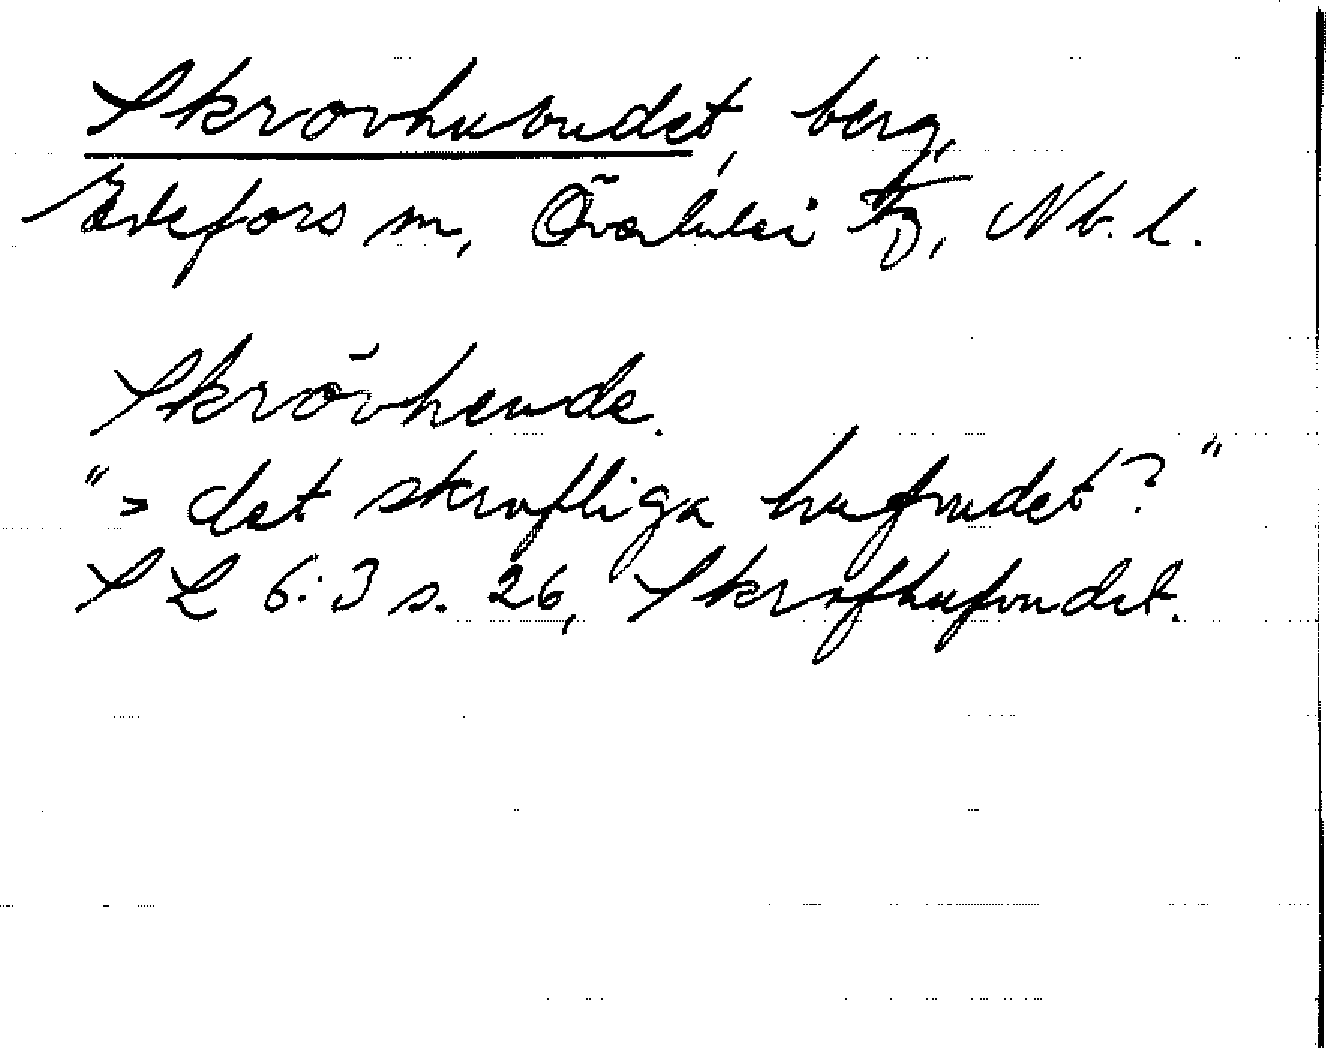 Skrovhuvudet, berg,
Edefors sn, Överluleå tg, Nb. l.
Skrövheude.
"= det skrofliga hufvudet?"
SL 6:3 s. 26, Skrofhufvudet.